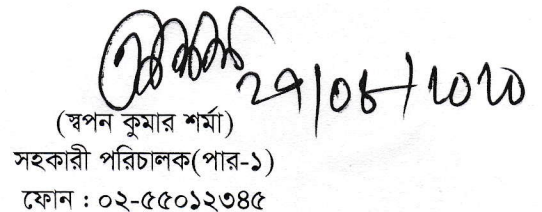 ২৭/০৮/২০২০
(স্বপন কুমার শর্মা)
সহকারী পরিচালক(পার-১)
ফোন : ০২-৫৫০১২৩৪৫